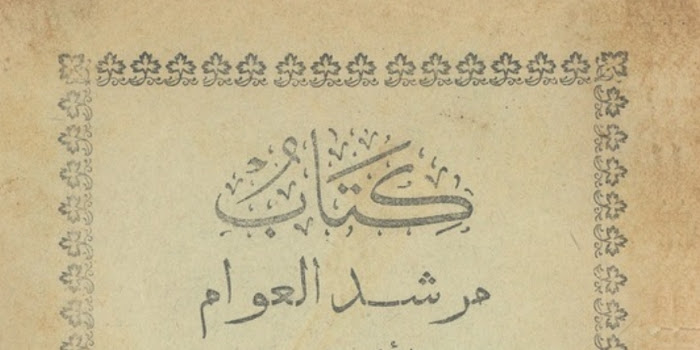 كِتَابُ
مرشد العوام